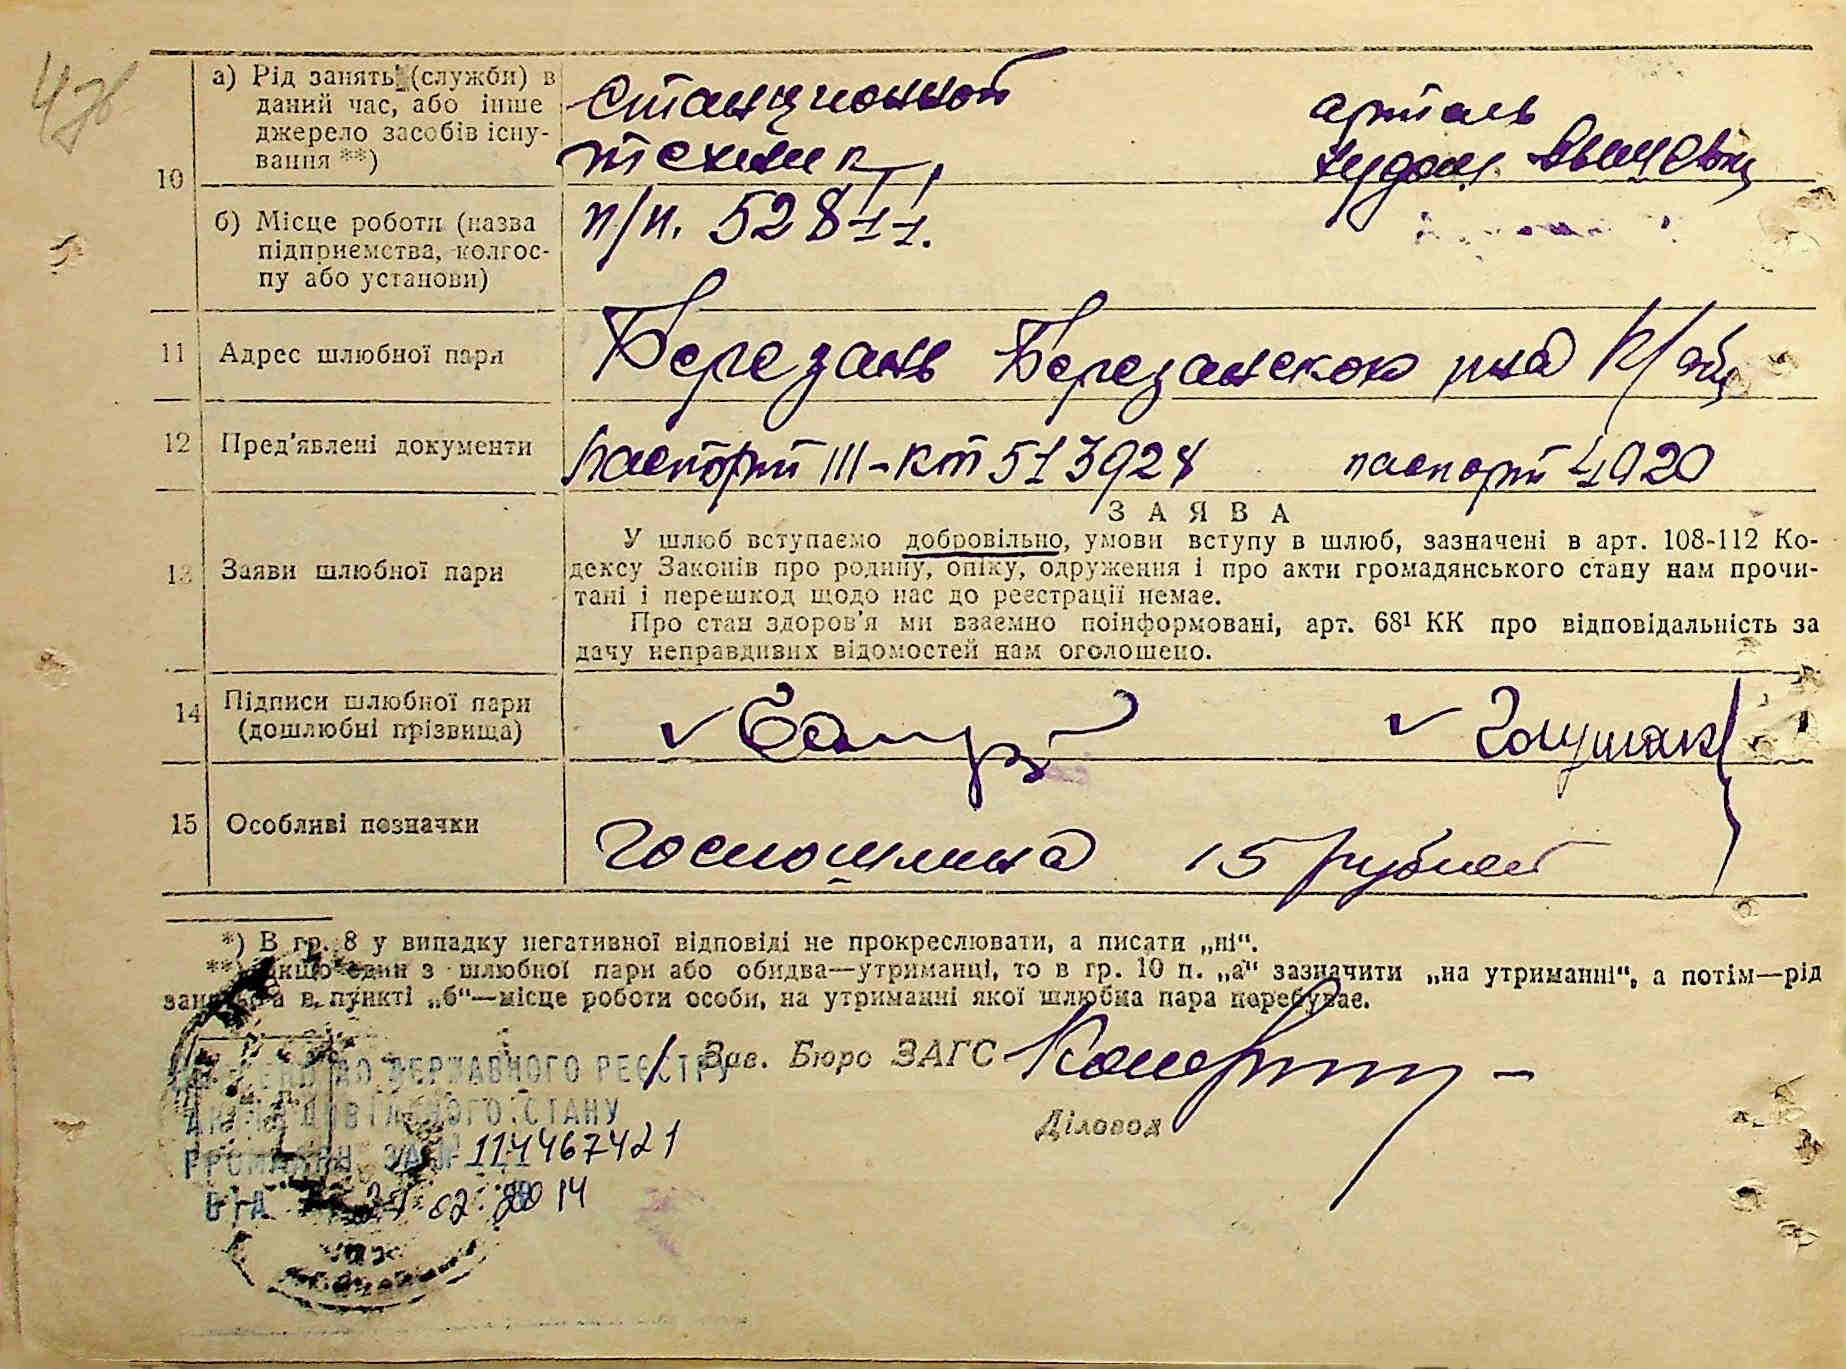 10
а) Рід занять (служби) в
даний час, або інше
джерело засобів існу-
вання **)
станционной
техник,
артель
худож.
б) Місце роботи (назва
підприємства, колгос-
пу або установи)
п/п. 52811.
11
Адрес шлюбної пари
Березань Березанского рна К/обл
12
Пред'явлені документи
Паспорт III-КТ 513924
паспорт 4920
13
Заяви шлюбної пари
ЗАЯВА
У шлюб вступаємо добровільно, умови вступу в шлюб, зазначені в арт. 108-112 Ко-
дексу Законів про родину, опіку, одруження і про акти громадянського стану нам прочи-
тані і перешкод щодо нас до реєстрації немає.
Про стан здоров'я ми взаємно поінформовані, арт. 68¹ КК про відповідальність за
дачу неправдивих відомостей нам оголошено.
14
Підписи шлюбної пари
(дошлюбні прізвища)
15
Особливі позначки
Госпошлина 15 рублей
*) В гр. 8 у випадку негативної відповіді не прокреслювати, а писати „ні“.
**) Якщо один з шлюбної пари або обидва—утриманці, то в гр. 10 п. „а“ зазначити „на утриманні“, а потім—рід
занять, а в пункті „б“—місце роботи особи, на утриманні якої шлюбна пара перебуває.
/ Зав. Бюро ЗАГС
Діловод
ДО ДЕРЖАВНОГО РЕЄСТРУ
СТАНУ
ГРОМАДЯН ЗА № 114467421
ВІД 02. 2014